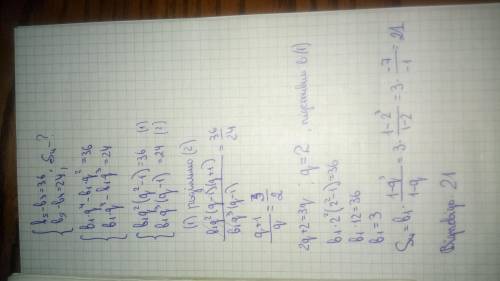 { b₅ - b₃ = 36, S₄ - ?
{ b₅ - b₄ = 24;
{ b₁q⁴ - b₁q² = 36
{ b₁q⁴ - b₁q³ = 24
{ b₁q²(q²-1) = 36 (1)
{ b₁q³(q-1) = 24 (2)
(1) поділимо (2)
b₁q²(q-1)(q+1) / b₁q³(q-1) = 36/24
q+1/q = 3/2
2q+2=3q ; q=2 , підставимо в (1)
b₁·2²(2²-1)=36
b₁·12=36
b₁=3
S₄ = b₁· 1-q³/1-q = 3· 1-2³/1-2 = 3· -7/-1 = 21
Відповідь 21